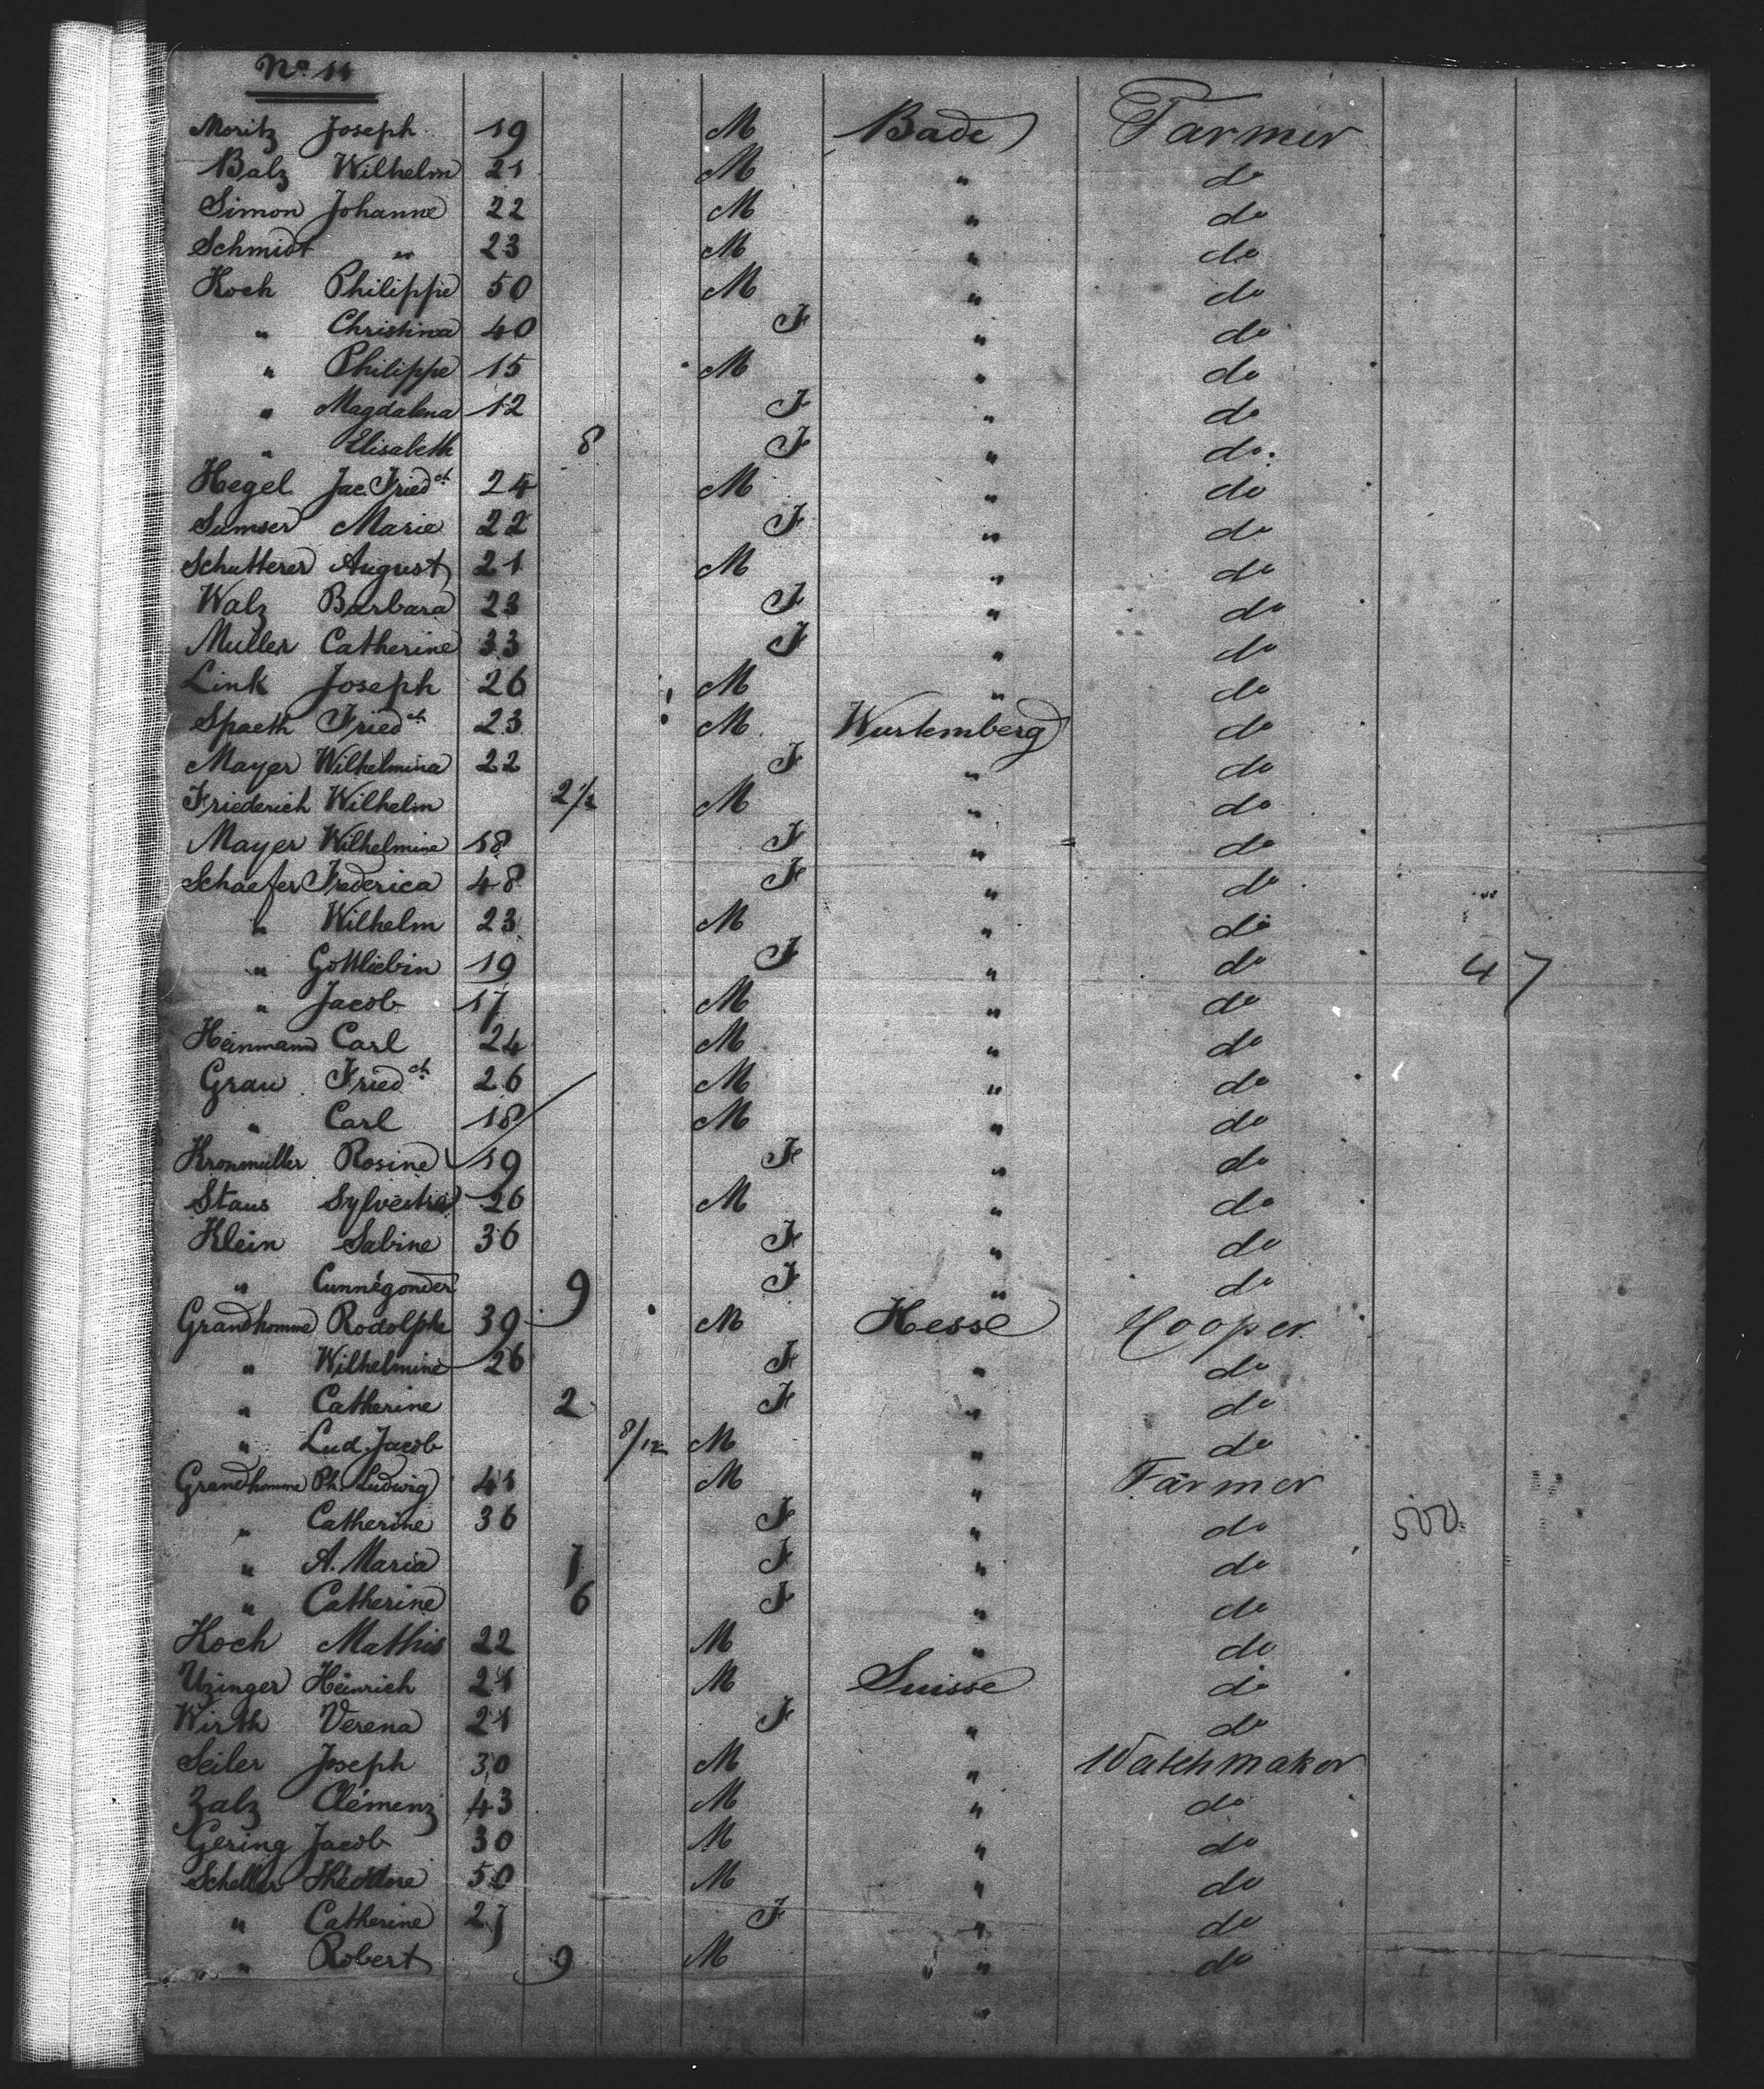 No 11
Moritz Joseph 19 M Bade Farmer
Balz Wilhelm 21 M " do
Simon Johanne 22 M " do
Schmidt " 23 M " do
Koch Philippe 50 M " do
" Christina 40 F " do
" Philippe 15 M " do
" Magdalena 12 F " do
" Elisabeth 8 F " do
Hegel Jac. Fried ch 24 M " do
Sumser Marie 22 F " do
Schutterer August 21 M " do
Walz Barbara 23 F " do
Muller Catherine 33 F " do
Link Joseph 26 M " do
Spaeth Fried ch 23 M Wurtemberg do
Mayer Wilhelmina 22 F " do
Friederich Wilhelm 2 1/2 M " do
Mayer Wilhelmine 18 F " do
Schaefer Frederica 48 F " do
" Wilhelm 23 M " do
" Gottliebin 19 F " do 47
" Jacob 17 M " do
Heinmann Carl 24 M " do
Grau Fried ch 26 M " do
" Carl 18 M " do
Kronmüller Rosine 19 F " do
Staus Sylvestre 26 M " do
Klein Sabine 36 F " do
" Cunnégonder 9 F " do
Grandhomme Rodolphe 39 M Hesse Cooper
" Wilhelmine 26 F " do
" Catherine 2 F " do
" Lud. Jacob 8/12 M " do
Grandhomme Ph. Ludwig 41 M " Farmer
" Catherine 36 F " do 500
" A. Maria 7 F " do
" Catherine 6 F " do
Koch Mathis 22 M " do
Uzinger Heinrich 21 M Suisse do
Wirth Verena 21 F " do
Seiler Joseph 30 M " Watchmaker
Zalz Clémenz 43 M " do
Gering Jacob 30 M " do
Scheller Théodore 50 M " do
" Catherine 27 F " do
" Robert 9 M " do
"